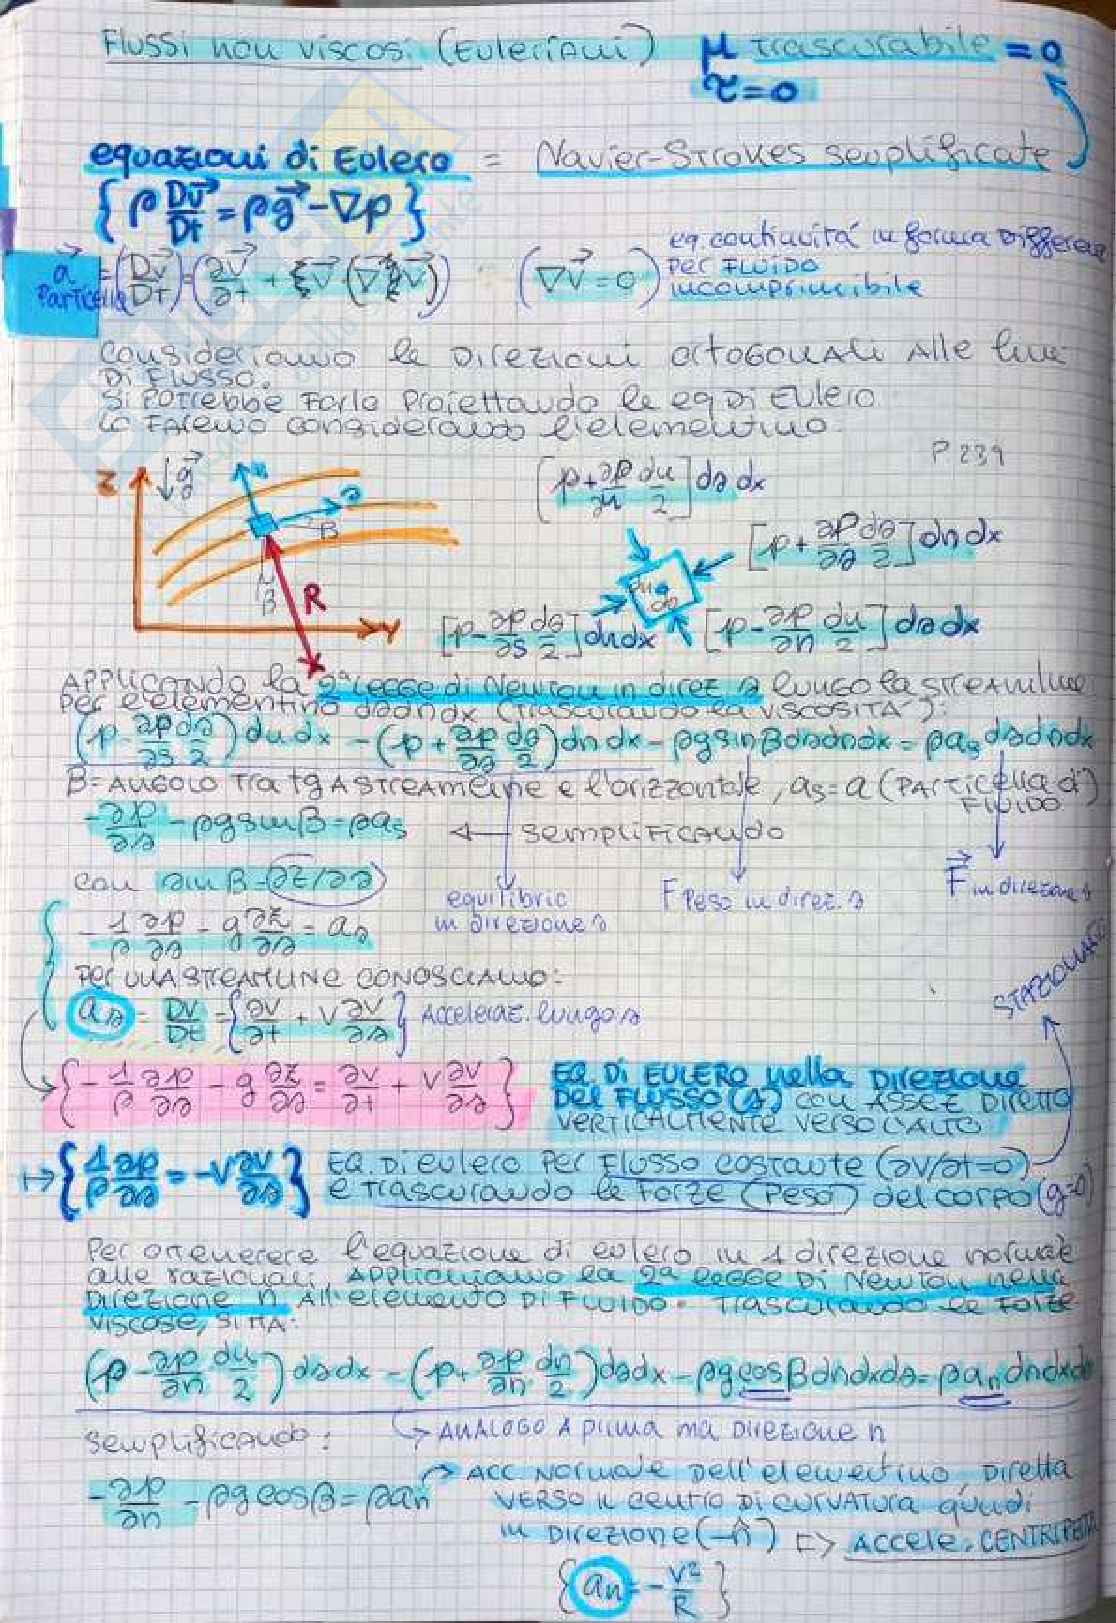 Flussi non viscosi (Euleriani) μ trascurabile = 0
τ = 0
equazioni di Eulero = Navier-Strokes semplificate
{ρ Dv⃗/Dt = ρg⃗ - ∇p}
a⃗ Particella = (Dv⃗/Dt) = (∂v⃗/∂t +
(∇v⃗ = 0) eq. continuitá in forma Differenz
per FLUIDO
incomprimibile
Consideriamo le Direzioni ortogonali Alle linee
Di flusso.
Si potrebbe Farlo Proiettando le eq Di Eulero
Lo Faremo considerando l'elementino.
P 239
[p + ∂p/∂n dn/2] ds dx
Z ↓g⃗ n s β
[p + ∂p/∂s ds/2] dn dx
β R
Y [p - ∂p/∂s ds/2] dn dx [p - ∂p/∂n dn/2] ds dx
APPLICANDO la 2ª legge di Newton in direz s lungo la streamline
per l'elementino ds dn dx (trascurando la viscosità):
(p - ∂p/∂s ds/2) dn dx - (p + ∂p/∂s ds/2) dn dx - ρg sin β ds dn dx = ρ as ds dn dx
β = Angolo tra tg a streamline e l'orizzontale, as = a (Particella di
FLUIDO)
-∂p/∂s - ρg sin β = ρ as ← semplificando
con sin β = ∂z/∂s
equilibrio
in direzione s
F Peso in direz. s
F⃗ in direzione s
-1/ρ ∂p/∂s - g ∂z/∂s = as
Per una streamline conosciamo:
as = Dv/Dt = {∂v/∂t + v ∂v/∂s} Acceleraz. lungo s
STAZIONARIO
{-1/ρ ∂p/∂s - g ∂z/∂s = ∂v/∂t + v ∂v/∂s} EQ. DI EULERO nella Direzione
Del FLUSSO (s) con ASSE Z Diretto
verticalmente verso l'alto
↦ {1/ρ ∂p/∂s = -v ∂v/∂s} EQ. Di eulero per flusso costante (∂v/∂t=0)
e trascurando le forze (Peso) del corpo (g=0)
Per ottenerere l'equazione di eulero in 1 direzione normale
alle razionali, Applichiamo la 2ª legge Di Newton nella
Direzione n All'elemento Di FLUIDO. Trascurando le Forze
viscose, si ha:
(p - ∂p/∂n dn/2) ds dx - (p + ∂p/∂n dn/2) ds dx - ρg cos β dn dx ds = ρ an dn dx ds
semplificando: ↪ ANALOGO A prima ma direzione n
-∂p/∂n - ρg cos β = ρ an → Acc Normale Dell'elementino, Diretta
verso il centro Di curvatura quindi
in direzione (-n̂) ↦ Accele. CENTRIPETA
{an = -v²/R}